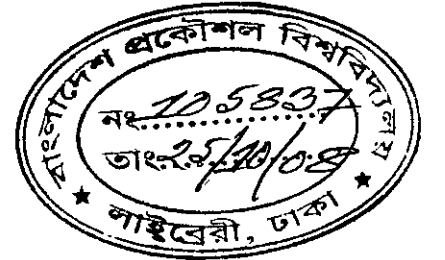 বাংলাদেশ প্রকৌশল বিশ্ববিদ্যালয়
নং 105837
তাং 25/10/08
★ লাইব্রেরী, ঢাকা ★